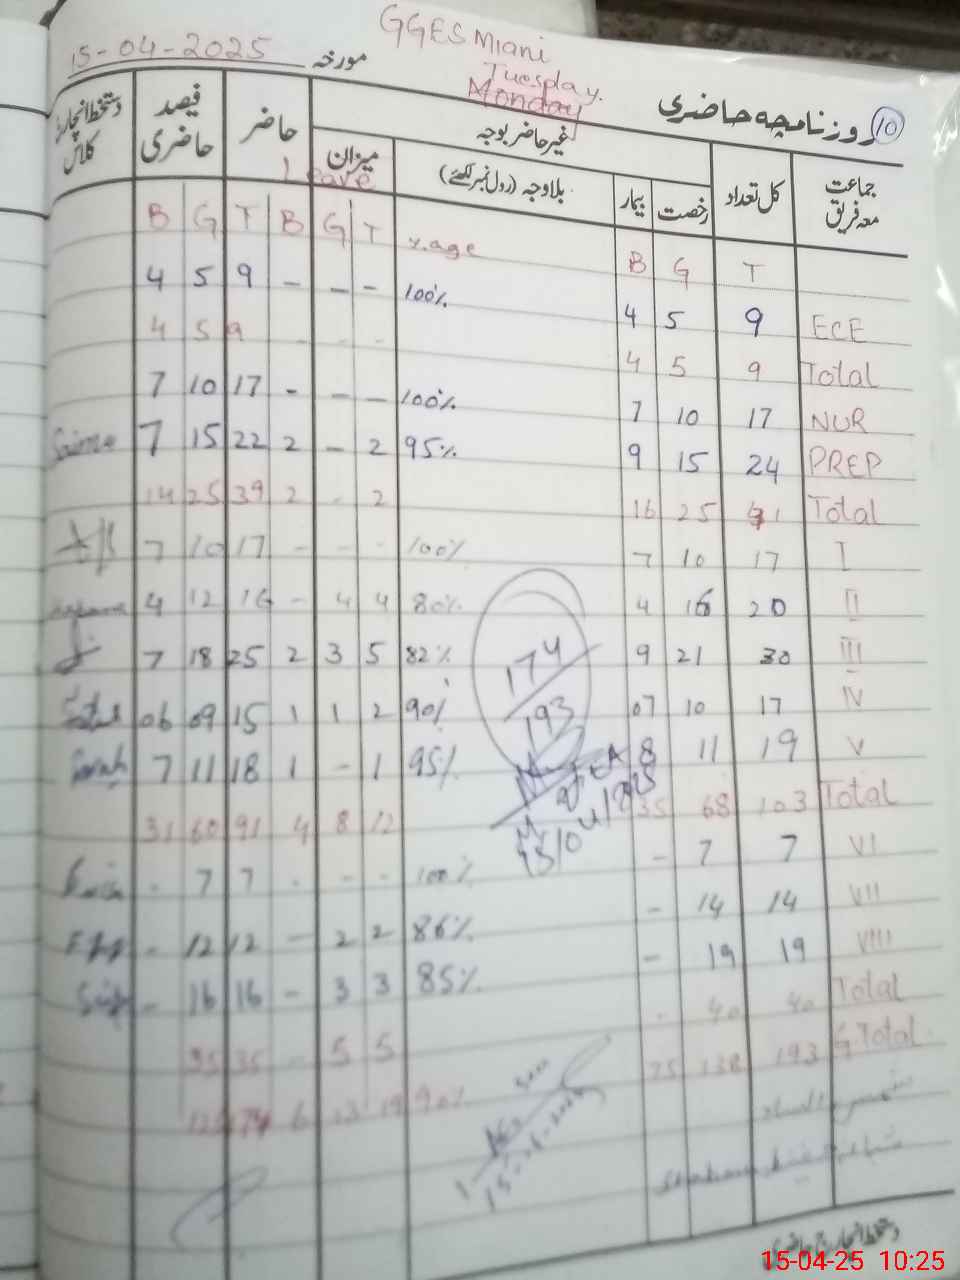 GGES Miani
15-04-2025 مورخہ
Tuesday.
Monday
روزنامچہ حاضری 10
جماعت معہ فریق | کل تعداد | غیر حاضر بوجہ | حاضر | فیصد حاضری | دستخط انچارج کلاس
رخصت | بیمار | بلاوجہ (رول نمبر لکھئے) | میزان
Leave
B G T B G T %age B G T
4 5 9 - - - 100% 4 5 9 ECE
4 5 9 - - - 4 5 9 Total
7 10 17 - - - 100% 7 10 17 NUR
7 15 22 2 - 2 95% 9 15 24 PREP
14 25 39 2 - 2 16 25 41 Total
7 10 17 - - - 100% 7 10 17 I
4 12 16 - 4 4 80% 4 16 20 II
7 18 25 2 3 5 82% 9 21 30 III
06 09 15 1 1 2 90% 07 10 17 IV
Sarah 7 11 18 1 - 1 95% 8 11 19 V
31 60 91 4 8 12 35 68 103 Total
- 7 7 - - - 100% - 7 7 VI
- 12 12 - 2 2 86% - 14 14 VII
- 16 16 - 3 3 85% - 19 19 VIII
35 35 - 5 5 - 40 40 Total
6 13 19 90% 138 193 G.Total
174
193
15/04/2025
دستخط انچارج حاضری
15-04-25 10:25